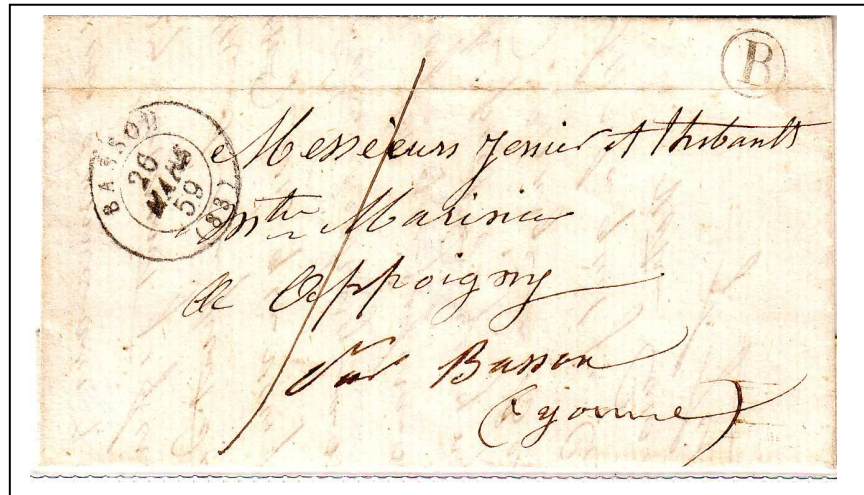 B
BASSOU
26
MARS
59
(88)
Messieurs Jessier et Thibault
Mtre Marinier
de Appoigny
Par Bassou
(Yonne)